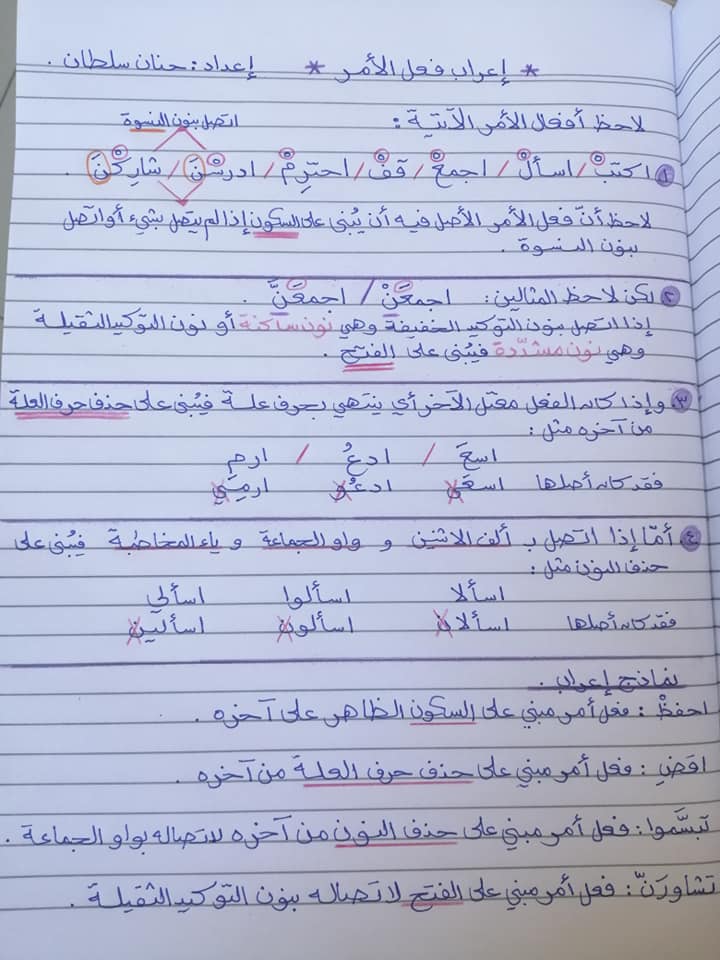 * إعراب فعل الأمر * إعداد: حنان سلطان .
لاحظ أفعال الأمر الآتية : اتصل بنون النسوة
١ اكتبْ / اسألْ / اجمعْ / قفْ / احترِمْ / ادرسْنَ / شاركْنَ .
لاحظ أنّ فعل الأمر الأصل فيه أن يُبنى على السكون إذا لم يتصل بشيء أو اتصل
بنون النسوة .
٢ لكن لاحظ المثالين : اجمعَنْ / اجمعَنَّ .
إذا اتصل بنون التوكيد الخفيفة وهي نون ساكنة أو نون التوكيد الثقيلة
وهي نون مشدّدة فيُبنى على الفتح .
٣ وإذا كان الفعل معتل الآخر أي ينتهي بحرف علة فيُبنى على حذف حرف العلة
من آخره مثل :
اسعَ / ادعُ / ارمِ
فقد كان أصلها اسعَى ادعُو ارمِي
٤ أمّا إذا اتصل بـ ألف الاثنين و واو الجماعة و ياء المخاطبة فيُبنى على
حذف النون مثل :
اسألا اسألوا اسألي
فقد كان أصلها اسألان اسألون اسألين
نماذج إعراب .
احفظْ : فعل أمر مبني على السكون الظاهر على آخره .
اقضِ : فعل أمر مبني على حذف حرف العلة من آخره .
تبسَّموا : فعل أمر مبني على حذف النون من آخره لاتصاله بواو الجماعة .
تشاورَنَّ : فعل أمر مبني على الفتح لاتصاله بنون التوكيد الثقيلة .